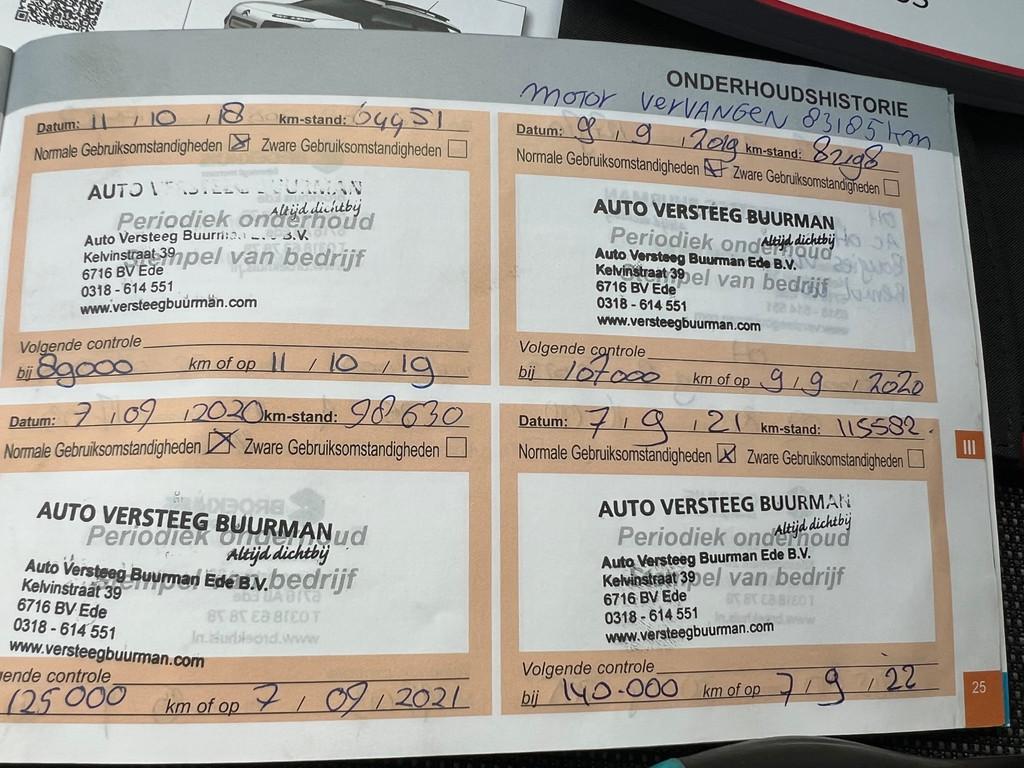 ONDERHOUDSHISTORIE
motor vervangen 83185 km
Datum: 11 / 10 / 18 km-stand: 64451
Normale Gebruiksomstandigheden ☒ Zware Gebruiksomstandigheden ☐
AUTO VERSTEEG BUURMAN
Altijd dichtbij
Periodiek onderhoud
Auto Versteeg Buurman Ede B.V.
Stempel van bedrijf
Kelvinstraat 39
6716 BV Ede
0318 - 614 551
www.versteegbuurman.com
Volgende controle
bij 89000 km of op 11 / 10 / 19
Datum: 9 / 9 / 2019 km-stand: 82198
Normale Gebruiksomstandigheden ☒ Zware Gebruiksomstandigheden ☐
AUTO VERSTEEG BUURMAN
Altijd dichtbij
Periodiek onderhoud
Auto Versteeg Buurman Ede B.V.
Stempel van bedrijf
Kelvinstraat 39
6716 BV Ede
0318 - 614 551
www.versteegbuurman.com
Volgende controle
bij 107000 km of op 9 / 9 / 2020
Datum: 7 / 09 / 2020 km-stand: 98630
Normale Gebruiksomstandigheden ☒ Zware Gebruiksomstandigheden ☐
AUTO VERSTEEG BUURMAN
Periodiek onderhoud
Altijd dichtbij
Auto Versteeg Buurman Ede B.V.
Stempel van bedrijf
Kelvinstraat 39
6716 BV Ede
0318 - 614 551
www.versteegbuurman.com
gende controle
125000 km of op 7 / 09 / 2021
Datum: 7 / 9 / 21 km-stand: 115582
Normale Gebruiksomstandigheden ☒ Zware Gebruiksomstandigheden ☐
AUTO VERSTEEG BUURMAN
Altijd dichtbij
Periodiek onderhoud
Auto Versteeg Buurman Ede B.V.
Stempel van bedrijf
Kelvinstraat 39
6716 BV Ede
0318 - 614 551
www.versteegbuurman.com
Volgende controle
bij 140.000 km of op 7 / 9 / 22
III
25